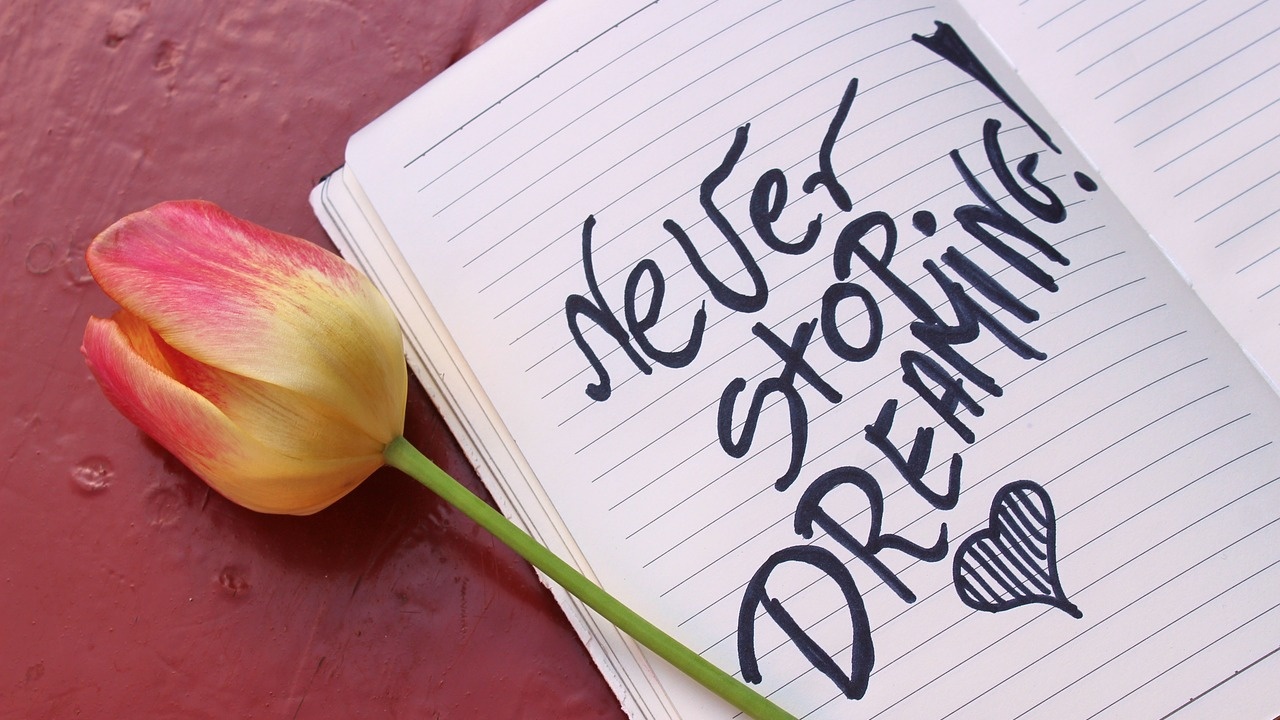 NeVer
stOP.
DREAMiNG!